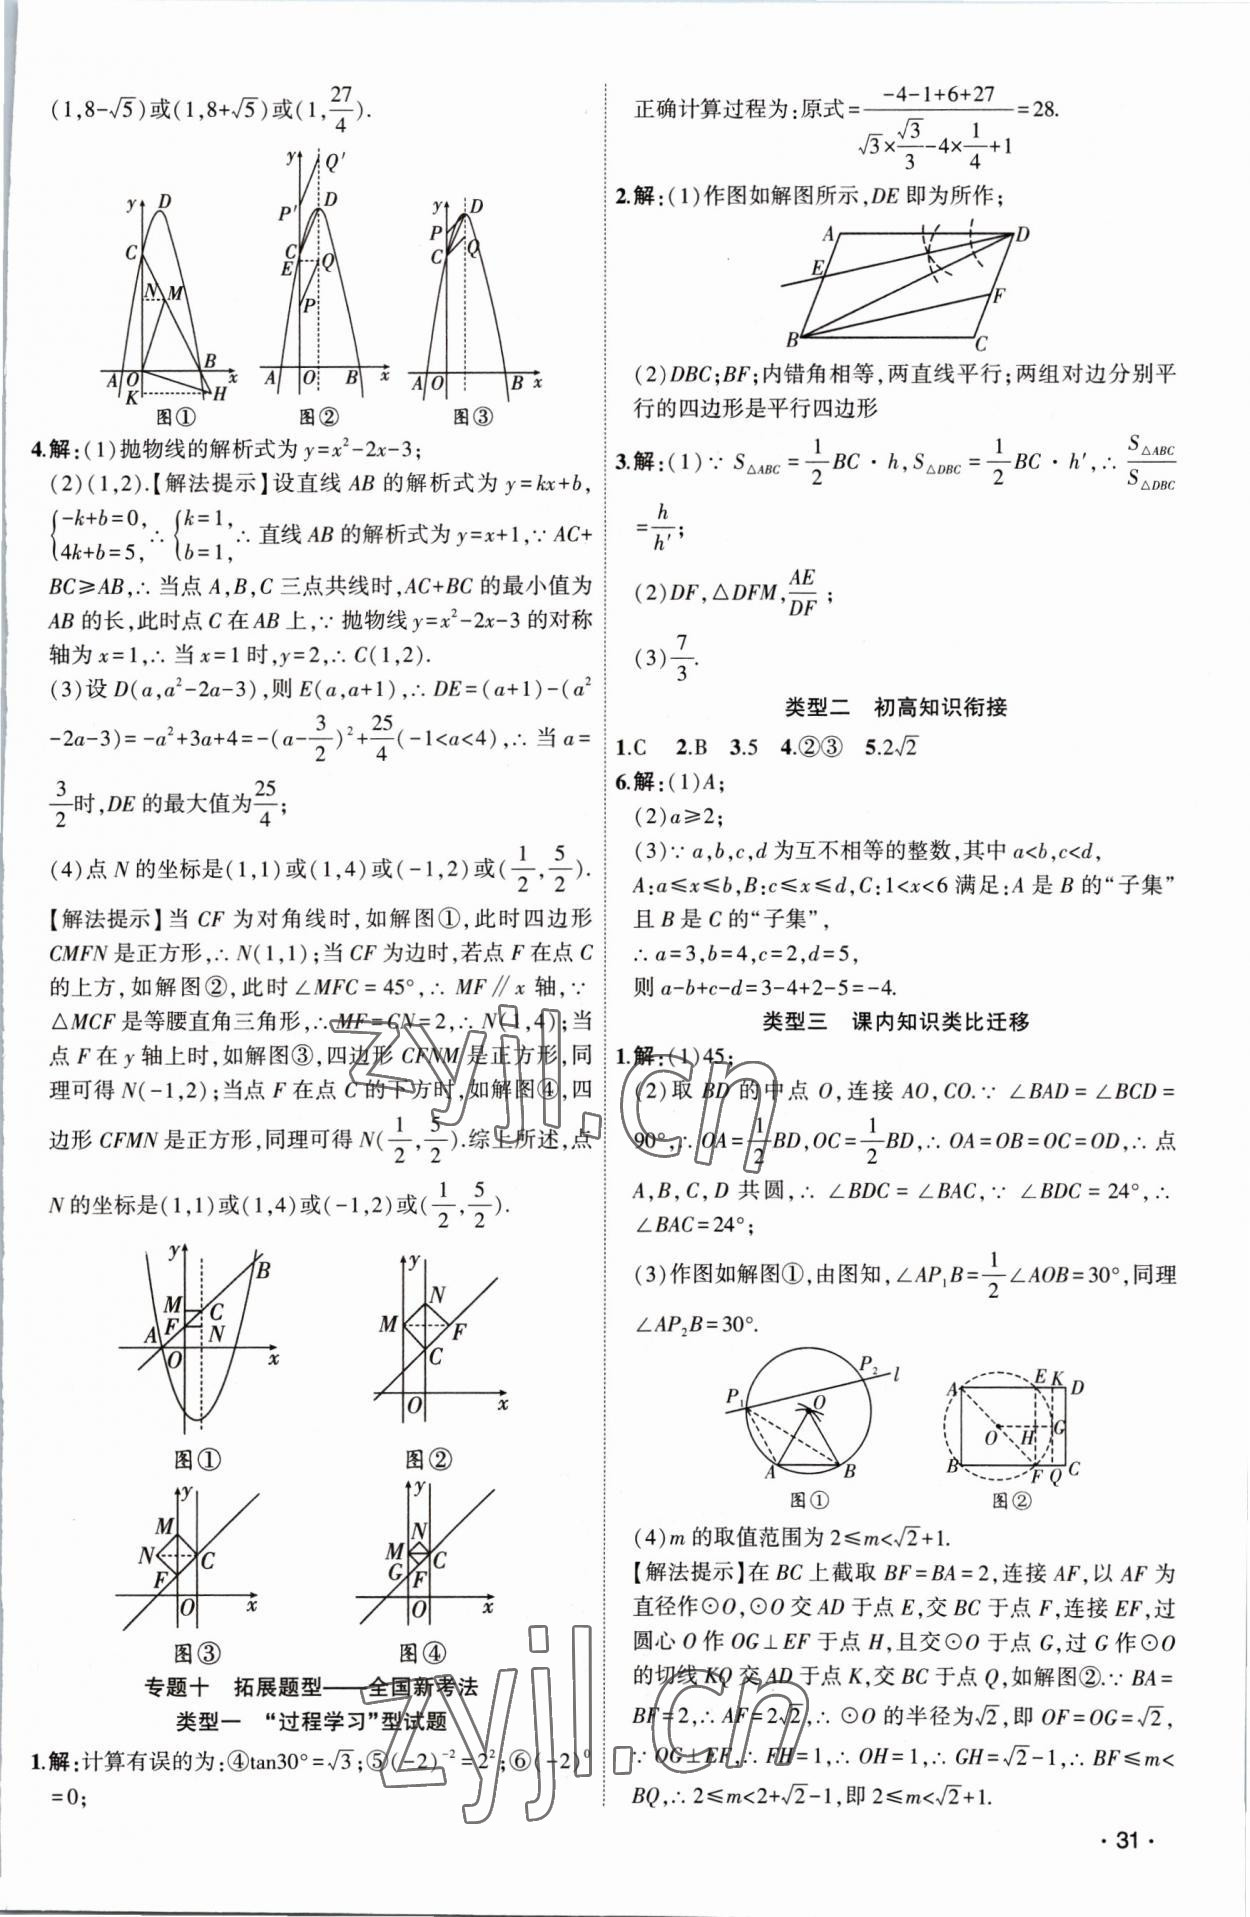 (1,8-√5)或(1,8+√5)或(1,27/4).
y D C N M A O B x K H 图①
y Q' P' D C E Q P A O B x 图②
y D P C Q A O B x 图③
4.解:(1)抛物线的解析式为y=x²-2x-3;
(2)(1,2).【解法提示】设直线AB的解析式为y=kx+b,
{-k+b=0, 4k+b=5, ∴{k=1, b=1, ∴直线AB的解析式为y=x+1,∵AC+
BC≥AB,∴当点A,B,C三点共线时,AC+BC的最小值为
AB的长,此时点C在AB上,∵抛物线y=x²-2x-3的对称
轴为x=1,∴当x=1时,y=2,∴C(1,2).
(3)设D(a,a²-2a-3),则E(a,a+1),∴DE=(a+1)-(a²
-2a-3)=-a²+3a+4=-(a-3/2)²+25/4(-1<a<4),∴当a=
3/2时,DE的最大值为25/4;
(4)点N的坐标是(1,1)或(1,4)或(-1,2)或(1/2,5/2).
【解法提示】当CF为对角线时,如解图①,此时四边形
CMFN是正方形,∴N(1,1);当CF为边时,若点F在点C
的上方,如解图②,此时∠MFC=45°,∴MF∥x轴,∵
△MCF是等腰直角三角形,∴MF=CN=2,∴N(1,4);当
点F在y轴上时,如解图③,四边形CFNM是正方形,同
理可得N(-1,2);当点F在点C的下方时,如解图④,四
边形CFMN是正方形,同理可得N(1/2,5/2).综上所述,点
N的坐标是(1,1)或(1,4)或(-1,2)或(1/2,5/2).
y B M C F N A O x 图①
y N M F C O x 图②
y M N C F O x 图③
y N M C G F O x 图④
专题十 拓展题型——全国新考法
类型一 “过程学习”型试题
1.解:计算有误的为:④tan30°=√3;⑤(-2)⁻²=2²;⑥(-2)⁰
=0;
正确计算过程为:原式=(-4-1+6+27)/(√3×√3/3-4×1/4+1)=28.
2.解:(1)作图如解图所示,DE即为所作;
A D E F B C
(2)DBC;BF;内错角相等,两直线平行;两组对边分别平
行的四边形是平行四边形
3.解:(1)∵S△ABC=1/2BC·h,S△DBC=1/2BC·h',∴S△ABC/S△DBC
=h/h';
(2)DF,△DFM,AE/DF;
(3)7/3.
类型二 初高知识衔接
1.C 2.B 3.5 4.②③ 5.2√2
6.解:(1)A;
(2)a≥2;
(3)∵a,b,c,d为互不相等的整数,其中a<b,c<d,
A:a≤x≤b,B:c≤x≤d,C:1<x<6满足:A是B的“子集”
且B是C的“子集”,
∴a=3,b=4,c=2,d=5,
则a-b+c-d=3-4+2-5=-4.
类型三 课内知识类比迁移
1.解:(1)45;
(2)取BD的中点O,连接AO,CO.∵∠BAD=∠BCD=
90°,∴OA=1/2BD,OC=1/2BD,∴OA=OB=OC=OD,∴点
A,B,C,D共圆,∴∠BDC=∠BAC,∵∠BDC=24°,∴
∠BAC=24°;
(3)作图如解图①,由图知,∠AP₁B=1/2∠AOB=30°,同理
∠AP₂B=30°.
P₁ P₂ l O A B 图①
A E K D O H G B F Q C 图②
(4)m的取值范围为2≤m<√2+1.
【解法提示】在BC上截取BF=BA=2,连接AF,以AF为
直径作⊙O,⊙O交AD于点E,交BC于点F,连接EF,过
圆心O作OG⊥EF于点H,且交⊙O于点G,过G作⊙O
的切线KQ交AD于点K,交BC于点Q,如解图②.∵BA=
BF=2,∴AF=2√2,∴⊙O的半径为√2,即OF=OG=√2,
∵OG⊥EF,∴FH=1,∴OH=1,∴GH=√2-1,∴BF≤m<
BQ,∴2≤m<2+√2-1,即2≤m<√2+1.
·31·
zyjl.cn
zyjl.cn